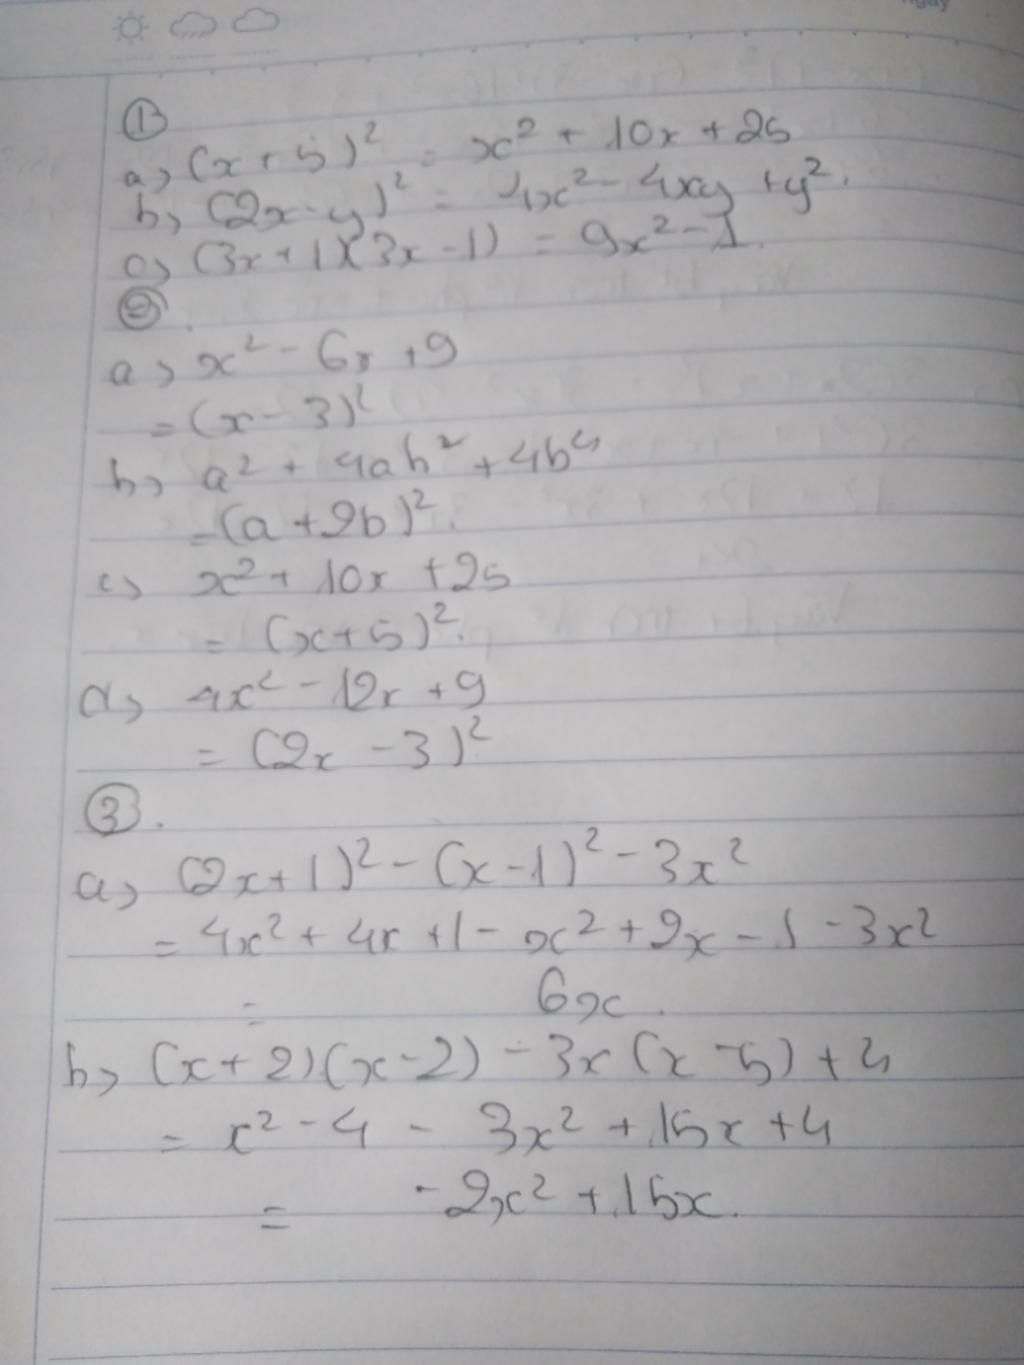 ①
a, (x + 5)² = x² + 10x + 25
b, (2x - y)² = 4x² - 4xy + y².
c, (3x + 1)(3x - 1) = 9x² - 1.
②.
a, x² - 6x + 9
= (x - 3)²
b, a² + 4ab² + 4b⁴
= (a + 2b)².
c, x² + 10x + 25
= (x + 5)².
d, 4x² - 12x + 9
= (2x - 3)²
③.
a, (2x + 1)² - (x - 1)² - 3x²
= 4x² + 4x + 1 - x² + 2x - 1 - 3x²
= 6x.
b, (x + 2)(x - 2) - 3x(x - 5) + 4
= x² - 4 - 3x² + 15x + 4
= -2x² + 15x.